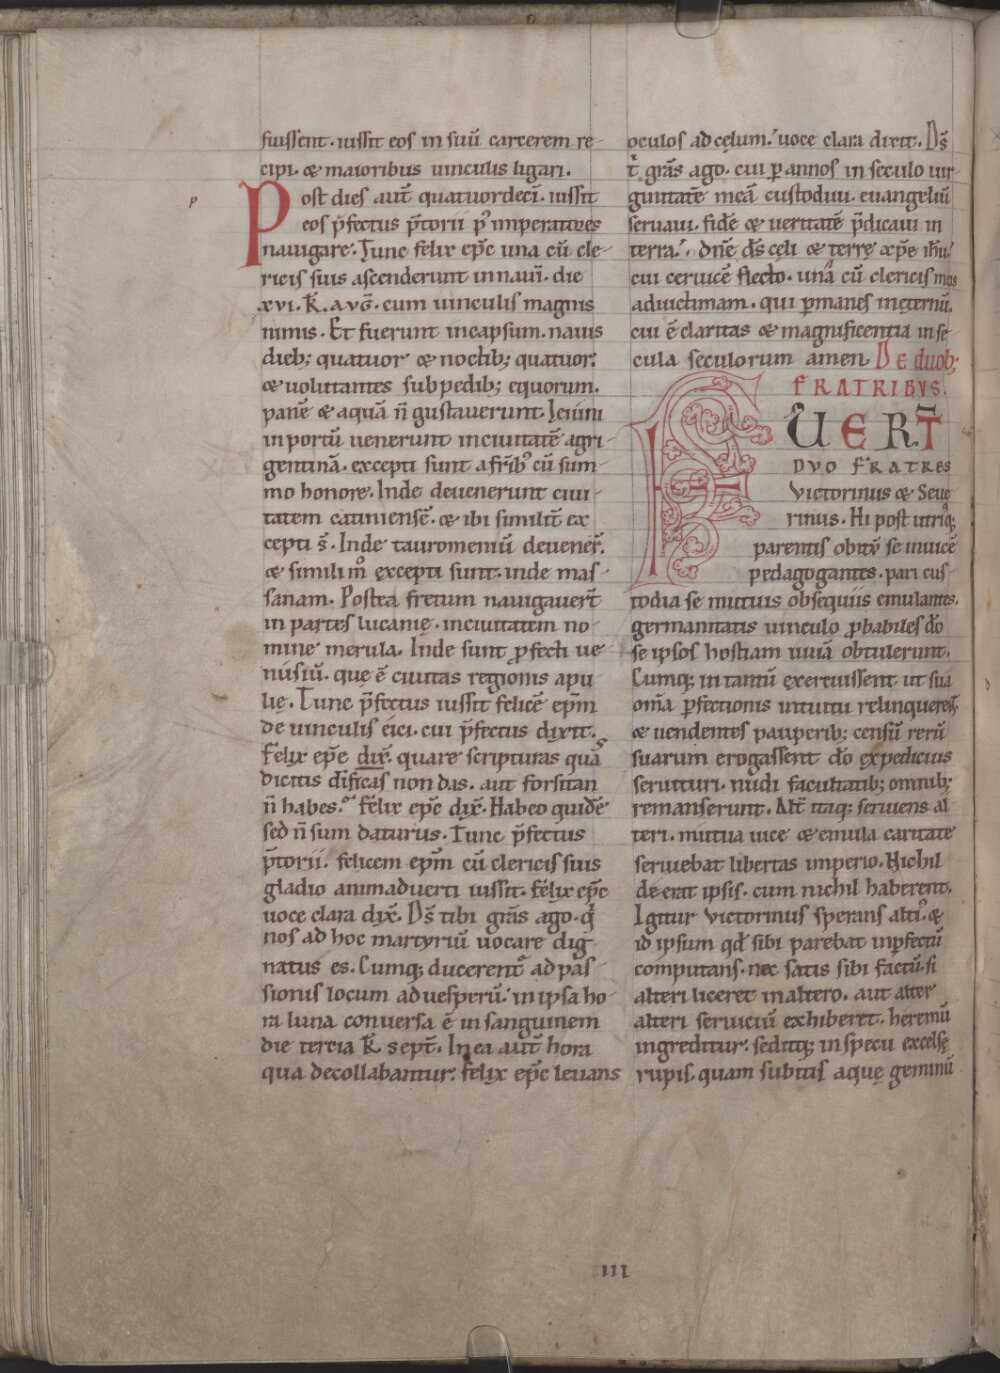 fuissent. iussit eos in suū carcerem re-
cipi. & maioribus uinculis ligari.
p
Post dies aut̄ quatuordecī. iussit
eos p̄fectus p̄torii p̱ imperatores
nauigare. Tunc felix ep̄c una cū cle-
ricis suis ascenderunt in nauī. die
xvi. k̄. avḡ. cum uinculis magnis
nimis. Et fuerunt in capsum nauis
dieb; quatuor & noctib; quatuor.
& uolutantes sub pedib; equorum.
panē & aquā n̄ gustauerunt. Ieiuni
in portū uenerunt in ciuitatē agri-
gentinā. excepti sunt a frīb; cū sum-
mo honore. Inde deuenerunt ciui-
tatem catiniensē. & ibi similit̄ ex
cepti s̄. Inde tauromeniū deuener̄.
& simili m̊ excepti sunt. inde mas-
sanam. Postea fretum nauigauer̄t
in partes lucanię. in ciuitatem no-
mine merula. Inde sunt ꝓfecti ue
nusiū. que ē ciuitas regionis apu
lię. Tunc p̄fectus iussit felicē ep̄m
de uinculis eici. cui p̄fectus dixit.
Felix ep̄c dix̄. quare scripturas quā
dicitus dificas non das. aut forsitan
n̄ habes. Felix ep̄c dix̄. Habeo quidē
sed n̄ sum daturus. Tunc p̄fectus
p̄torii. felicem ep̄m cū clericis suis
gladio animaduerti iussit. Felix ep̄c
uoce clara dix̄. Ds̄ tibi grās ago. q̄
nos ad hoc martyriū uocare dig
natus es. Cumq; ducerent̄ ad pas-
sionis locum ad uesperū. in ipsa ho-
ra luna conuersa ē in sanguinem
die tercia k̄. sept̄. In ea aut̄ hora
qua decollabantur. felix ep̄c leuans
oculos ad cęlum. uoce clara dixit. Ds̄
t̄ grās ago. cui ꝑ annos in seculo uir
ginitatē meā custodiui. euangeliū
seruaui. fidē & ueritatē p̄dicaui in
terra. Dn̄e ds̄ cęli & terrę xp̄e ih̄u.
cui ceruicē flecto. unā cū clericis meis
ad uictimam. qui ꝑmanes in ęternū.
cui ē claritas & magnificentia in se
cula seculorum amen. De duob;
FRATRIBVS.
FUERT̄
DVO FRATRES
Victorinus & Seue
rinus. Hi post utriq;
parentis obitū se inuicē
pedagogantes. pari cus-
todia se mutuis obsequiis emulantes.
germanitatis uinculo ꝓbabiles dō
se ipsos hostiam uiuā obtulerunt.
Cumq; in tantū excreuissent ut sua
om̄a ꝑfectionis intuitu relinquerent
& uendentes pauperib; censū rerū
suarum erogassent dō expedicius
seruituri. nudi facultatib; omnib;
remanserunt. Alt̄ itaq; seruiens al
teri. mutua uice & emula caritate
seruiebat libertas imperio. Nichil
de erat ipsis. cum nichil haberent.
Igitur Victorinus sperans alti᾽. &
id ipsum qd̄ sibi parebat inꝑfectū
computans. nec satis sibi factū. si
alteri liceret in altero. aut alter
alteri seruiciū exhiberet. heremū
ingreditur. seditq; in specu excelsę
rupis. quam subitis aquę geminū
III